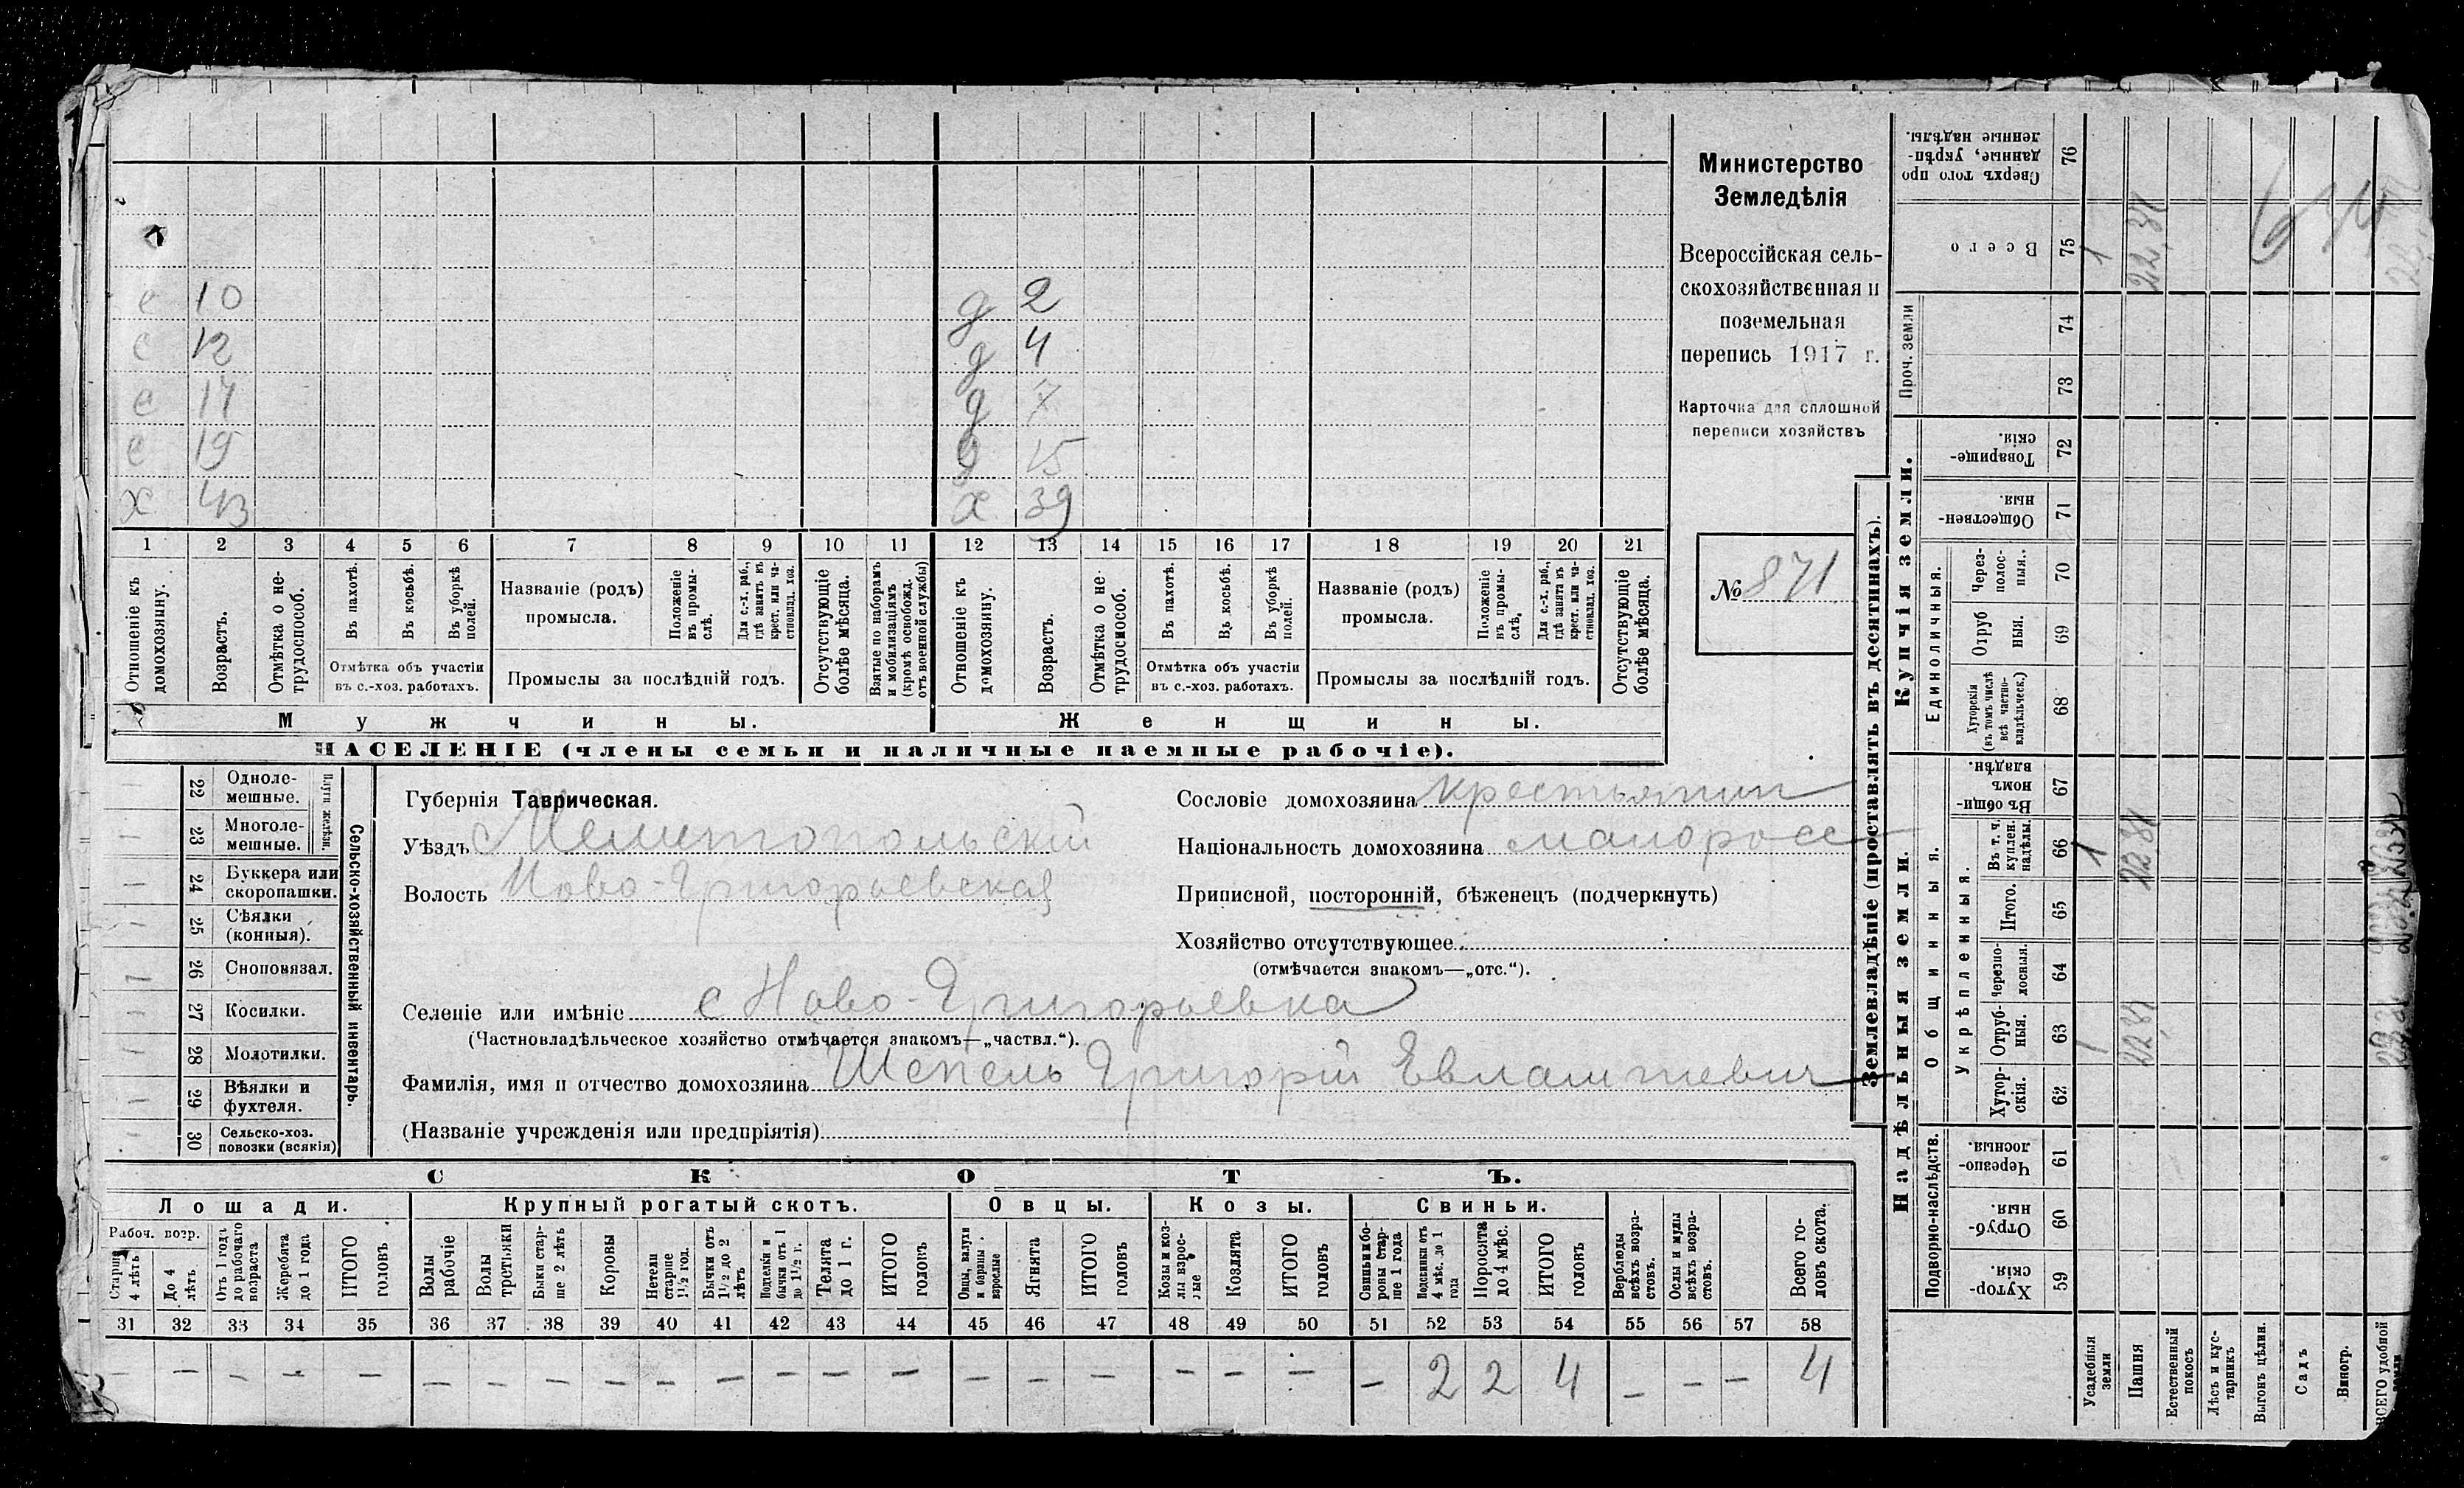 Министерство
Земледѣлія
Всероссійская сель-
скохозяйственная и
поземельная
перепись 1917 г.
Карточка для сплошной
переписи хозяйствъ
№ 871
с 10 д 2
с 12 д 4
с 17 д 7
с 19 д 15
х 43 х 39
1 2 3 4 5 6 7 8 9 10 11 12 13 14 15 16 17 18 19 20 21
Отношеніе къ домохозяину.
Возрастъ.
Отмѣтка о не-трудоспособ.
Въ пахотѣ.
Въ косьбѣ.
Въ уборкѣ полей.
Отмѣтка объ участіи
въ с.-хоз. работахъ.
Названіе (родъ)
промысла.
Положеніе въ промы-слѣ.
Для с.-х. раб., гдѣ занятъ въ крест. или ча-стновлад. хоз.
Промыслы за послѣдній годъ.
Отсутствующіе болѣе мѣсяца.
Взятые по наборамъ и мобилизаціямъ (кромѣ освобожд. отъ военной службы)
Отношеніе къ домохозяину.
Возрастъ.
Отмѣтка о не трудоспособ.
Въ пахотѣ.
Въ косьбѣ.
Въ уборкѣ полей.
Отмѣтка объ участіи
въ с.-хоз. работахъ.
Названіе (родъ)
промысла.
Положеніе въ промы-слѣ.
Для с.-х. раб., гдѣ занятъ въ крест. или ча-стновлад. хоз.
Промыслы за послѣдній годъ.
Отсутствующіе болѣе мѣсяца.
Мужчины. Женщины.
НАСЕЛЕНІЕ (члены семьи и наличные наемные рабочіе).
Сельско-хозяйственный инвентарь.
Плуги желѣзн.
22 Одноле-мешные.
23 Многоле-мешные.
24 Буккера или скоропашки.
25 Сѣялки (конныя).
26 Сноповязал.
27 Косилки.
28 Молотилки.
29 Вѣялки и фухтеля.
30 Сельско-хоз. повозки (всякія)
Губернія Таврическая.
Уѣздъ Мелитопольскій
Волость Ново-Григорьевская
Сословіе домохозяина крестьянин
Національность домохозяина малоросс
Приписной, посторонній, бѣженецъ (подчеркнуть)
Хозяйство отсутствующее
(отмѣчается знакомъ—„отс.“).
Селеніе или имѣніе с Ново-Григорьевка
(Частновладѣльческое хозяйство отмѣчается знакомъ—„частвл.“).
Фамилія, имя и отчество домохозяина Шепель Григорій Евлампіевич
(Названіе учрежденія или предпріятія)
СКОТЪ.
Лошади. Крупный рогатый скотъ. Овцы. Козы. Свиньи.
Рабоч. возр.
Старше 4 лѣтъ
До 4 лѣтъ
Отъ 1 года до рабочаго возраста
Жеребята до 1 года
ИТОГО головъ
Волы рабочіе
Волы третьяки
Быки стар-ше 2 лѣтъ
Коровы
Нетели старше 1½ год.
Бычки отъ 1½ до 2 лѣтъ
Подтелки и бычки отъ 1 до 1½ г.
Телята до 1 г.
ИТОГО головъ
Овцы, валухи и бараны взрослые
Ягнята
ИТОГО головъ
Козы и коз-лы взрос-лые
Козлята
ИТОГО головъ
Свиньи и бо-ровы стар-ше 1 года
Подсвинки отъ 4 мѣс. до 1 года
Поросята до 4 мѣс.
ИТОГО головъ
Верблюды всѣхъ возра-стовъ.
Ослы и мулы всѣхъ возра-стовъ.
Всего го-ловъ скота.
31 32 33 34 35 36 37 38 39 40 41 42 43 44 45 46 47 48 49 50 51 52 53 54 55 56 57 58
— — — — — — — — — — — — — — — — — — — — — 2 2 4 — — — 4
Землевладѣніе (проставлять въ десятинахъ).
Купчія земли.
Надѣльныя земли.
Сверхъ того про данные, укрѣп-ленные надѣлы. 76
Всего 75 1 22,81
Проч. земли 74 73
Товарище-скія. 72
Обществен-ныя. 71
Единоличныя.
Через-полос-ныя. 70
Отруб ныя. 69
Хуторскія (въ томъ числѣ всѣ частно-владѣльческ.) 68
Общинныя.
Въ общи номъ владѣн. 67
Укрѣпленныя.
Въ т. ч. куплен. надѣлы. 66 1 22,81
Итого. 65
Черезпо-лосныя. 64
Отруб-ныя. 63 1 22,81
Хутор-скія. 62
Подворно-наслѣдств.
Черезпо-лосныя. 61
Отруб-ныя. 60
Хутор-скія. 59
Усадебныя земли
Пашня
Естественный покосъ
Лѣсъ и кус-тарникъ
Выгонъ цѣлин.
Садъ
Виногр.
ВСЕГО удобной